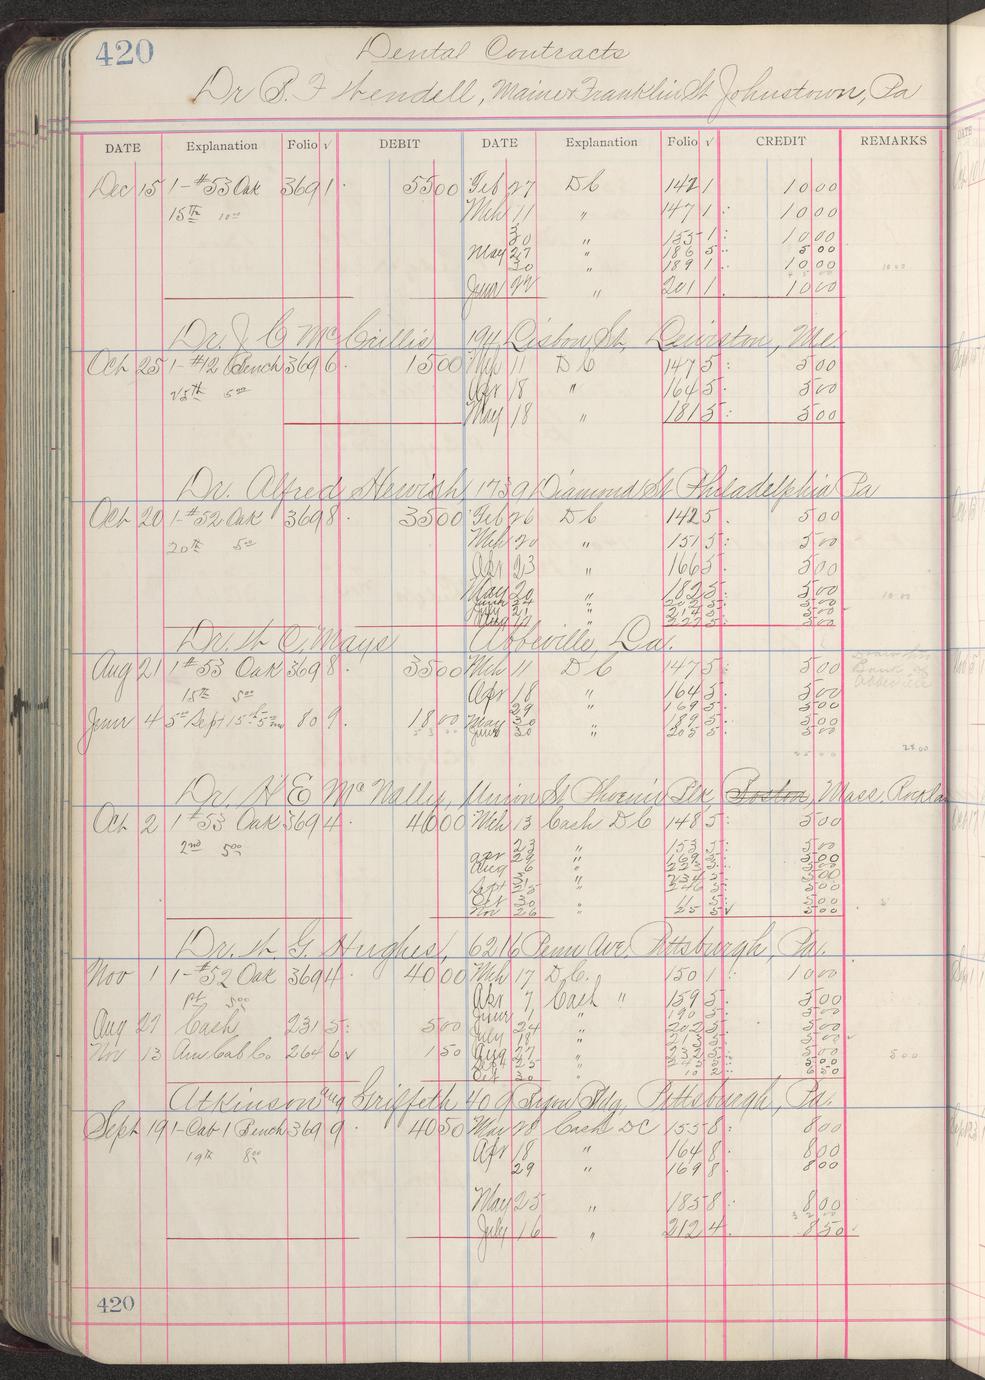 420 Dental Contracts
Dr S. F Wendell, Main & Franklin St Johnstown, Pa
DATE Explanation Folio √ DEBIT DATE Explanation Folio √ CREDIT REMARKS
Dec 15 1-#53 Oak 369 1 55 00 Feb 27 DC 142 1 10 00
15th 10 00 Mch 11 " 147 1 10 00
30 " 155 1 10 00
May 27 " 186 5 5 00
30 " 189 1 10 00 10 00
June 22 " 201 1 10 00
Dr. J C McCrillis 194 Lisbon St, Lewiston, Me
Oct 25 1-#12 Bench 369 6 15 00 Mch 11 DC 147 5 5 00
25th 5 00 Apr 18 " 164 5 5 00
May 18 " 181 5 5 00
Dr. Alfred Hewish, 1739 Diamond St Philadelphia Pa
Oct 20 1-#52 Oak 369 8 35 00 Feb 26 DC 142 5 5 00
20th 5 00 Mch 20 " 151 5 5 00
Apr 23 " 166 5 5 00
May 20 " 182 5 5 00 10 00
June 24 " 202 5 5 00
July 21 " 214 5 5 00
Aug " 227 5 5 00
Dr. W C. Mays Abbeville, La.
Aug 21 1 #53 Oak 369 8 35 00 Mch 11 DC 147 5 5 00
Bank of
Abbeville
15th 5 00 Apr 18 " 164 5 5 00
29 " 169 5 5 00
June 4 5 00 Sept 15th 80 9 18 00 May 30 " 189 5 5 00
June 30 " 205 5 5 00
25 00 28 00
Dr. H E McNally, Union St Phoenix Blk, Boston, Mass, Rockland
Oct 2 1 #53 Oak 369 4 40 00 Mch 13 Cash DC 148 5 5 00
2nd 5 00 23 " 153 5 5 00
Apr 29 " 169 5 5 00
Aug 6 " 223 5 5 00
31 " 234 5 5 00
Sept 25 " 246 5 5 00
Oct 30 " 11 5 5 00
Nov 26 " 25 5 √ 5 00
Dr. W. G. Hughes, 6216 Penn Ave, Pittsburgh, Pa.
Nov 1 1-#52 Oak 369 4 40 00 Mch 17 DC. 150 1 10 00
1st 5 00 Apr 7 Cash " 159 5 5 00
June 1 " 190 5 5 00
Aug 27 Cash 231 5 5 00 24 " 202 5 5 00
July 18 " 5 00
Nov 13 Am Cab Co. 264 6 √ 1 50 Aug 27 " 232 5 5 00 5 00
Sept 25 " 245 5 5 00
Oct 30 " 10 2 6 50
Atkinson and Griffeth 409 Bijou Bldg, Pittsburgh, Pa.
Sept 19 1-Cab 1 Bench 369 9 40 50 Mar 28 Cash DC 155 8 8 00
19th 8 00 Apr 18 " 164 8 8 00
29 " 169 8 8 00
May 25 " 185 8 8 00
32 00
July 16 " 212 4 8 50
420